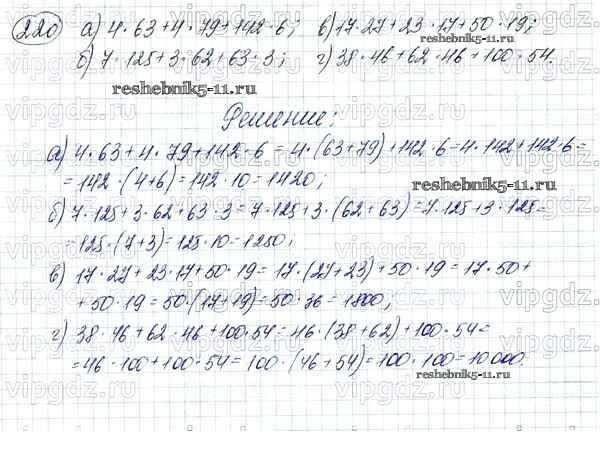 220 а) 4·63+4·79+142·6; в) 17·27+23·17+50·19;
б) 7·125+3·62+63·3; г) 38·46+62·46+100·54.
reshebnik5-11.ru
Решение:
а) 4·63+4·79+142·6=4·(63+79)+142·6=4·142+142·6=
=142·(4+6)=142·10=1420;
reshebnik5-11.ru
б) 7·125+3·62+63·3=7·125+3·(62+63)=7·125+3·125=
=125·(7+3)=125·10=1250;
в) 17·27+23·17+50·19=17·(27+23)+50·19=17·50+
+50·19=50·(17+19)=50·36=1800;
г) 38·46+62·46+100·54=46·(38+62)+100·54=
=46·100+100·54=100·(46+54)=100·100=10000.
reshebnik5-11.ru
vipgdz.ru